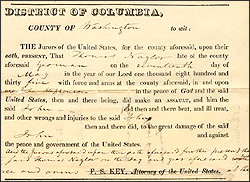 DISTRICT OF COLUMBIA,
COUNTY OF Washington to wit:
THE Jurors of the United States, for the county aforesaid, upon their
oath, PRESENT, That Thomas Naylor late of the county
aforesaid yeoman on the day of
May in the year of our Lord one thousand eight hundred and
thirty with force and arms at the county aforesaid, in and upon
one in the peace of GOD and the said
United States, then and there being, did make an ASSAULT, and him the
said John did then and there beat, and ill treat,
and other wrongs and injuries to the said
then and there did, to the great damage of the said
John and against
the peace and government of the United States.
And the jurors aforesaid upon their oath aforesaid further present that
Thomas Naylor on the day and year aforesaid
F. S. KEY, Attorney of the United States.